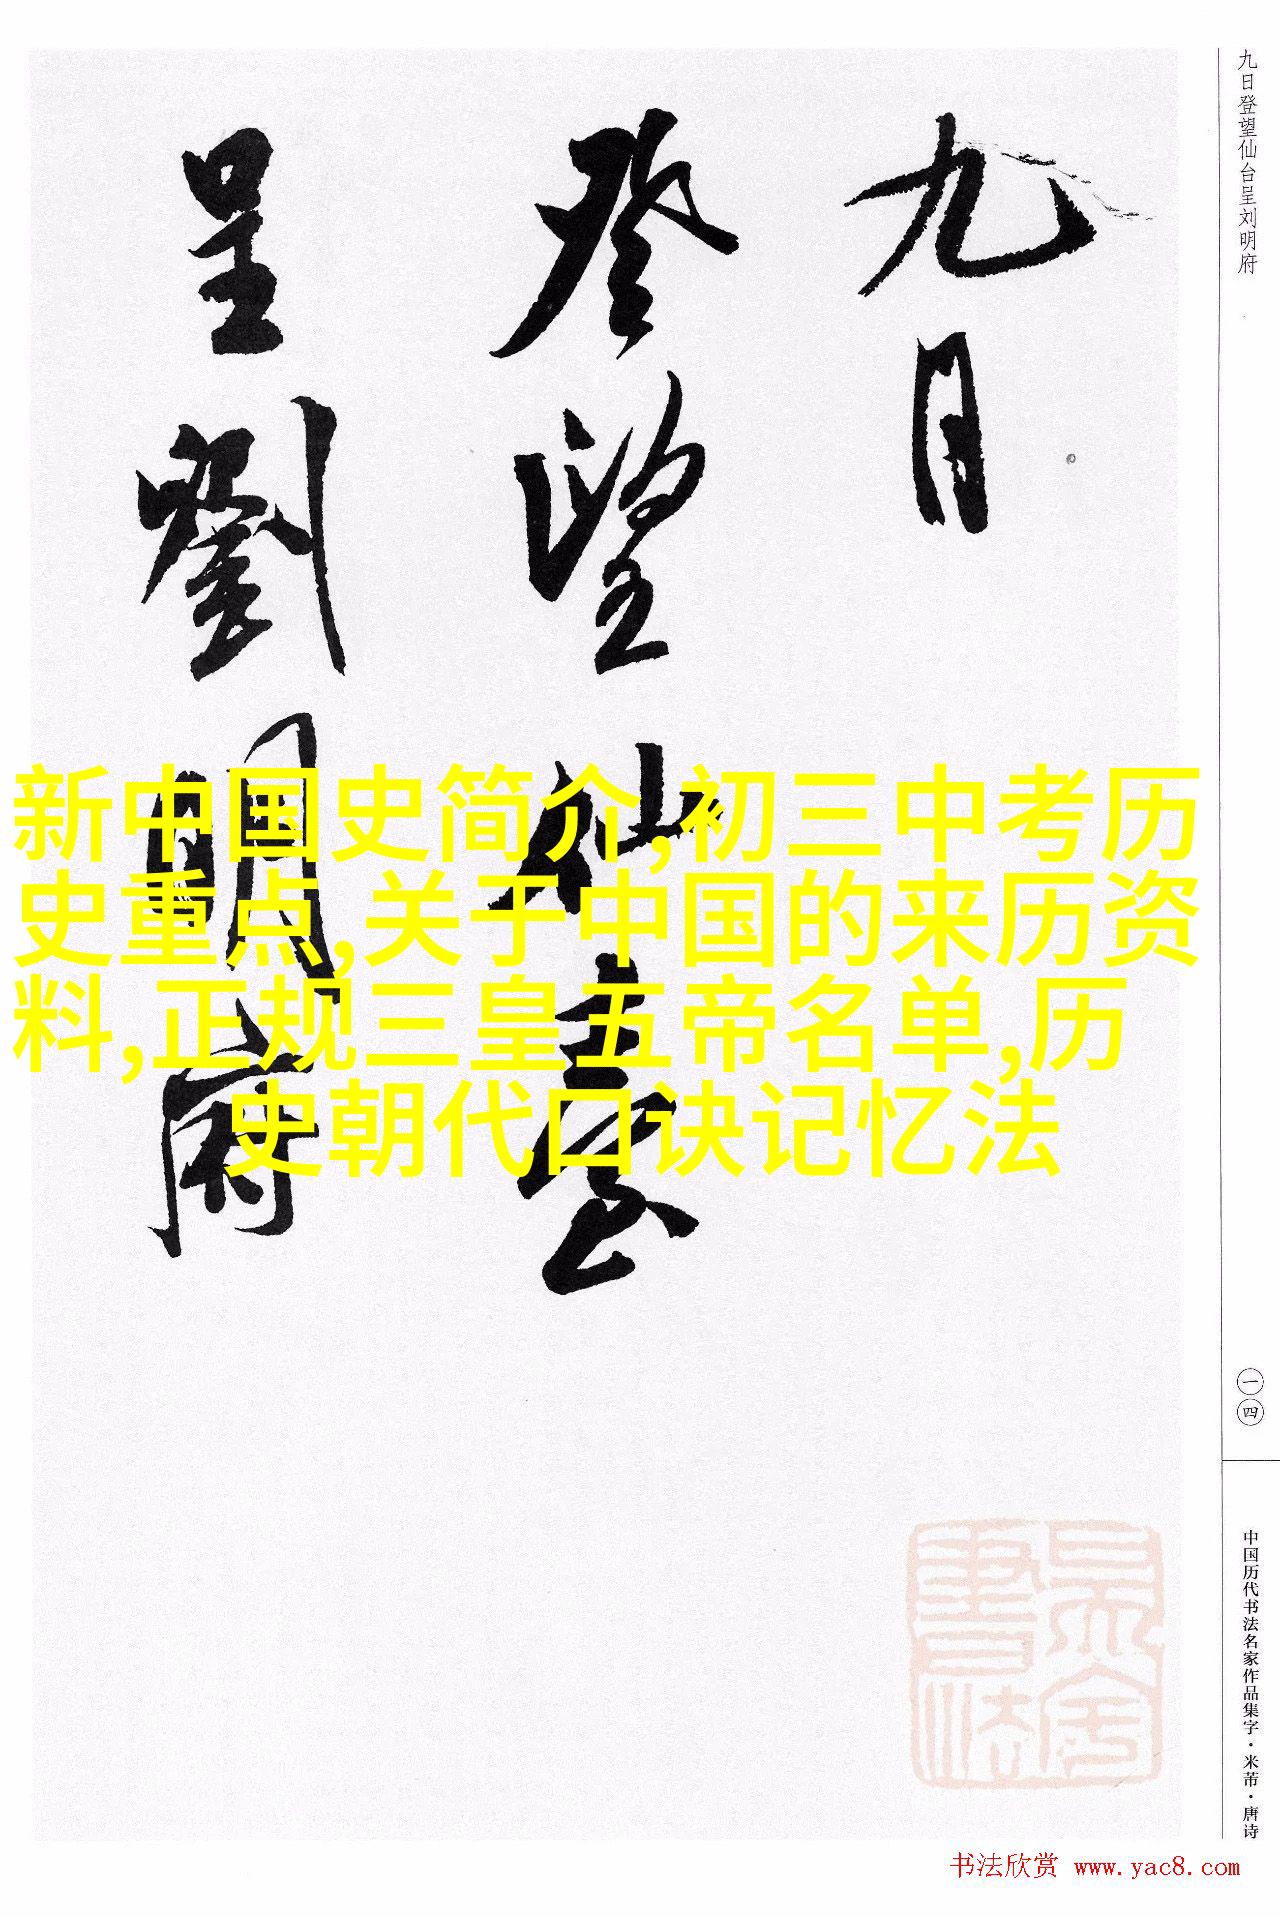 九日
登望仙臺
呈劉明府
新中国史简介,初三中考历
史重点,关于中国的来历资
料,正规三皇五帝名单,历
史朝代口诀记忆法
九日登望仙台呈刘明府
一四
中国历代书法名家作品集字·米芾·唐诗
书法欣赏 www.yac8.com